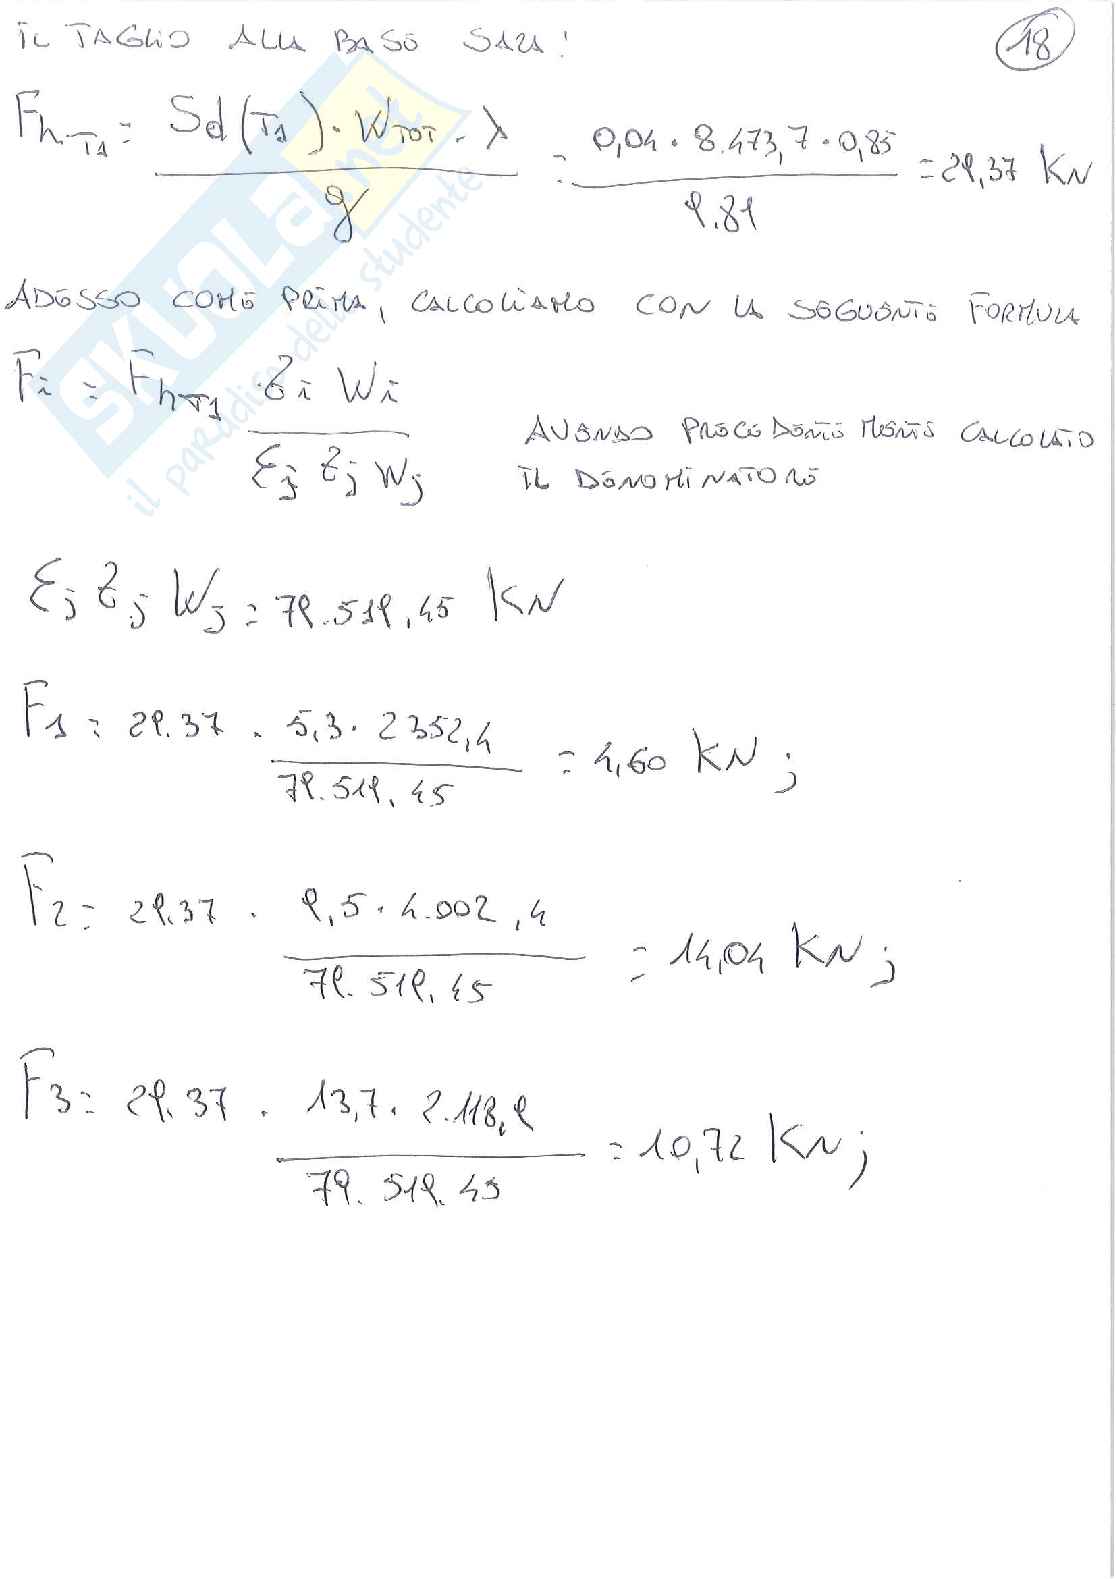 IL TAGLIO ALLA BASE SARA'
18
Fh,T1 = Sd(T1) · WTOT · λ / g = 0,04 · 8.473,7 · 0,85 / 9.81 = 29,37 KN
ADESSO COME PRIMA, CALCOLIAMO CON LA SEGUENTE FORMULA
Fi = Fh,T1 · Zi Wi / Σj Zj Wj
AVENDO PRECEDENTEMENTE CALCOLATO
IL DENOMINATORE
Σj Zj Wj = 79.519,45 KN
F1 = 29.37 · 5,3 · 2352,4 / 79.519,45 = 4,60 KN ;
F2 = 29.37 · 9,5 · 4.002,4 / 79.519,45 = 14,04 KN ;
F3 = 29.37 · 13,7 · 2.118,9 / 79.519.45 = 10,72 KN ;
SKUOLA.net
il paradiso dello studente